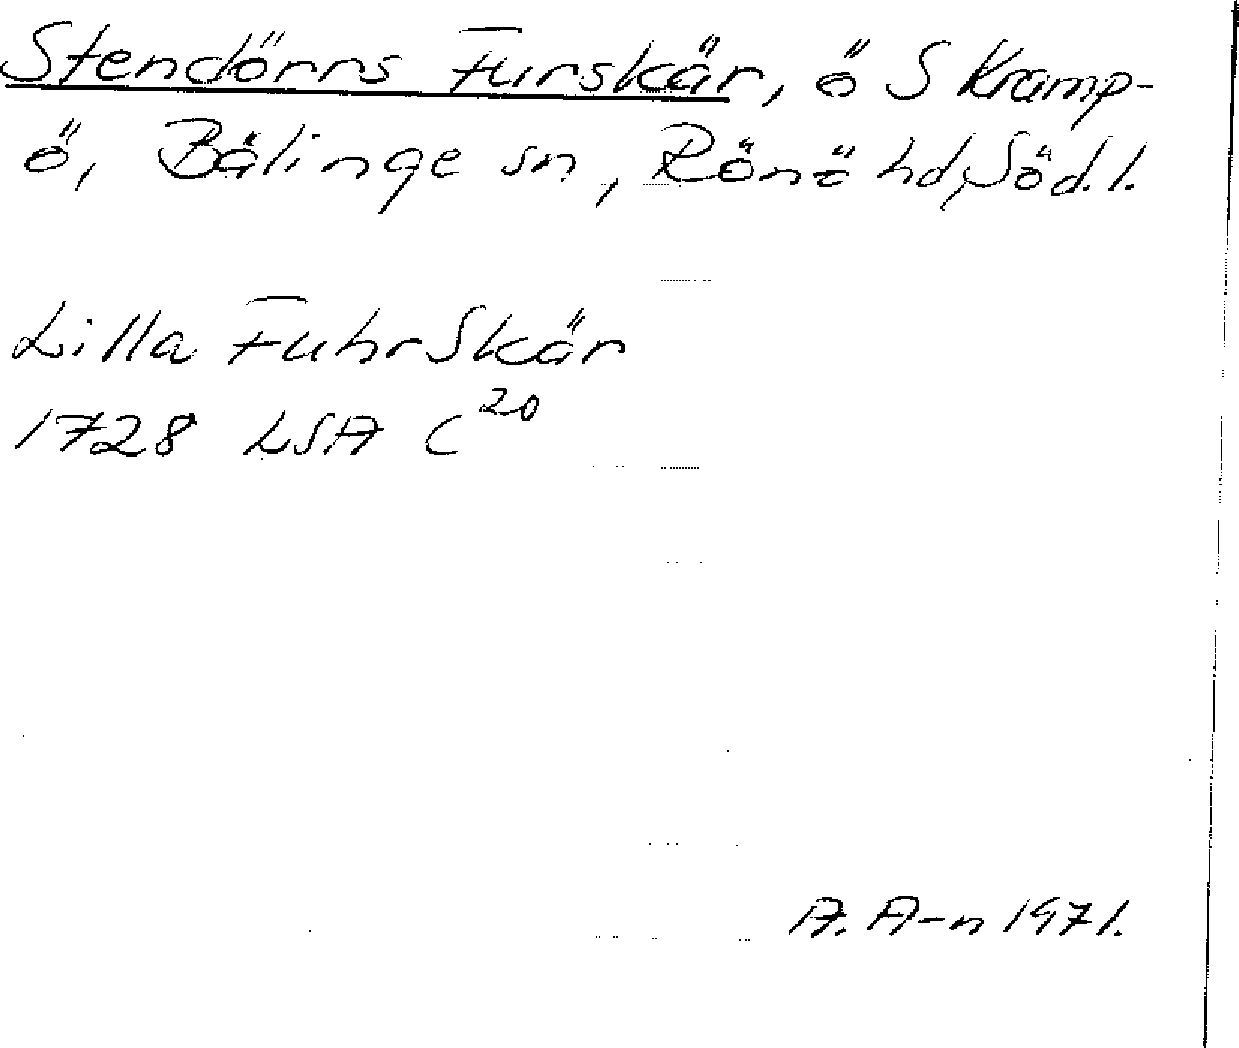 Stendörrs Furskär, ö S Kramp-
ö, Bälinge sn, Rönö hd, Söd.l.
Lilla FuhrSkär
1728 LSA C²⁰
A. A-n 1971.